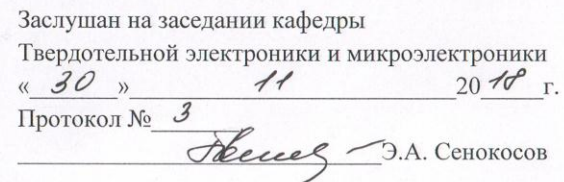 Заслушан на заседании кафедры
Твердотельной электроники и микроэлектроники
«30» 11 2018 г.
Протокол № 3
Э.А. Сенокосов